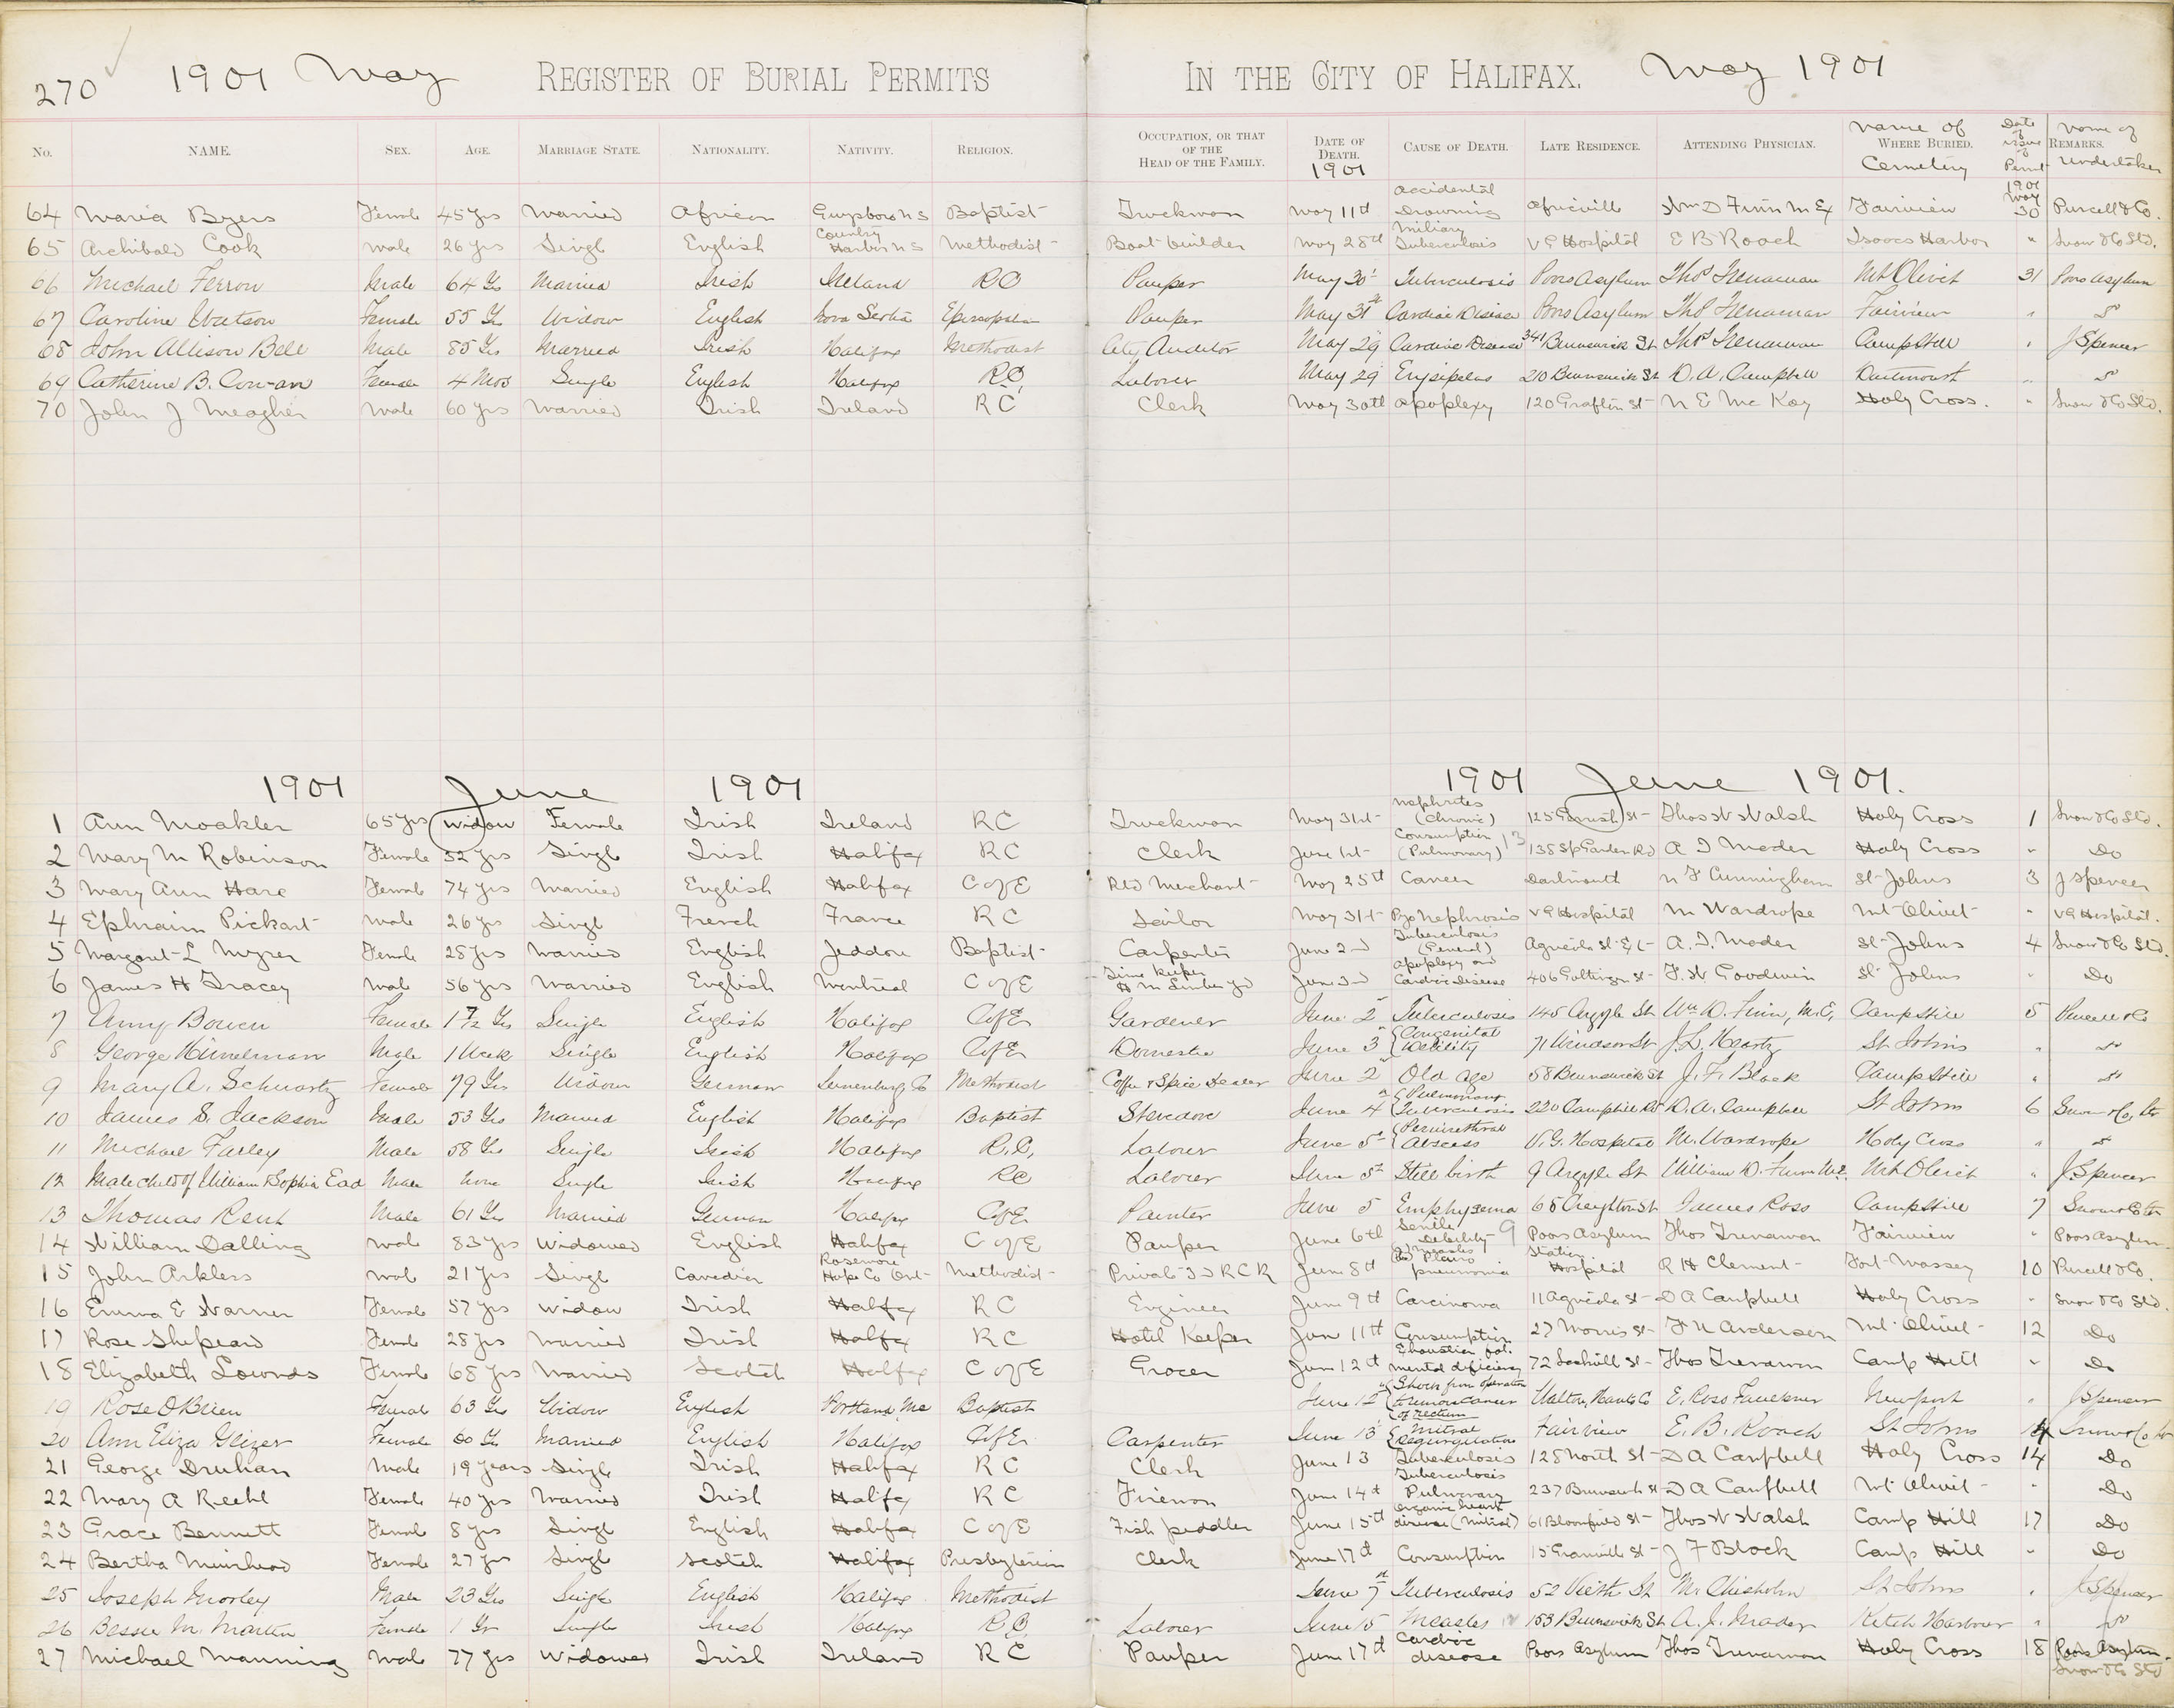 270 1901 May REGISTER OF BURIAL PERMITS IN THE CITY OF HALIFAX. May 1901
No. NAME. SEX. AGE. MARRIAGE STATE. NATIONALITY. NATIVITY. RELIGION. OCCUPATION, OR THAT OF THE HEAD OF THE FAMILY. DATE OF DEATH. 1901 CAUSE OF DEATH. LATE RESIDENCE. ATTENDING PHYSICIAN. Name of WHERE BURIED. Cemetery Date of issue of Permit REMARKS. Name of Undertaker
64 Maria Byers Female 45 yrs Married African Guysboro N S Baptist Truckman May 11th Accidental Drowning Africville Wm D Finn M Ex Fairview 1901 May 30 Purcell & Co.
65 Archibald Cook Male 26 yrs Singl English Country Harbor N S Methodist Boat builder May 28th Miliary Tuberculosis V G Hospital E B Roach Isaacs Harbor " Snow & Co Ltd.
66 Michael Ferron Male 64 Yrs Married Irish Ireland RC Pauper May 30 Tuberculosis Poors Asylum Thos Trenaman Mt Olivet 31 Poors Asylum
67 Caroline Watson Female 55 Yrs Widow English Nova Scotia Episcopalian Pauper May 31st Cardiac Disease Poors Asylum Thos Trenaman Fairview "
68 John Allison Bell Male 85 Yrs Married Irish Halifax Methodist City Auditor May 29 Cardiac Disease 341 Brunswick St Thos Trenaman Camp Hill " J Spencer
69 Catherine B. Cowan Female 4 Mos Single English Halifax R.C. Laborer May 29 Erysipelas 210 Brunswick St D. A. Campbell Dartmouth "
70 John J Meagher Male 60 yrs Married Irish Ireland R C Clerk May 30th Apoplexy 120 Grafton St N E McKay Holy Cross. " Snow & Co Ltd.
1901 June 1901 1901 June 1901.
1 Ann Moakler 65 yrs Widow Female Irish Ireland R C Truckman May 31st Nephrites (Chronic) 125 St Thos W Walsh Holy Cross 1 Snow & Co Ltd.
2 Mary M Robinson Female 52 yrs Singl Irish Halifax R C Clerk June 1st Consumption (Pulmonary) 13 138 Sp Garden Rd A I Mader Holy Cross " Do
3 Mary Ann Hare Female 74 yrs Married English Halifax C of E Rtd Merchant May 25th Cancer Dartmouth N F Cunningham St Johns 3 J Spencer
4 Ephraim Pickart Male 26 yrs Singl French France R C Sailor May 31st Pyo Nephrosis V G Hospital M Wardrope Mt Olivet " V G Hospital.
5 Margaret L Myrer Female 28 yrs Married English Jeddore Baptist Carpenter June 2nd Tuberculosis (General) Agricola St A. I. Mader St Johns 4 Snow & Co Ltd.
6 James H Tracey Male 56 yrs Married English Montreal C of E Time keeper H M Lumber Yd June 3rd Apoplexy and Cardiac Disease 406 Gottingen St F. W Goodwin St Johns " Do
7 Amy Bowen Female 1 7/12 Yrs Single English Halifax C of E Gardener June 2 Tuberculosis 145 Argyle St Wm D. Finn, M.E. Camp Hill 5 Purcell & Co
8 George Himelman Male 1 Week Single English Halifax C of E Domestic June 3 Congenital Debility 71 Windsor St J. L. Heartz St Johns "
9 Mary A. Schwartz Female 79 Yrs Widow German Lunenburg Co Methodist Coffee & Spice Dealer June 2 Old Age 58 Brunswick St J. F. Black Camp Hill "
10 James S. Jackson Male 53 Yrs Married English Halifax Baptist Stevedore June 4 Pulmonary Tuberculosis 220 Camphill Rd D. A. Campbell St Johns 6 Snow & Co. Ltd
11 Michael Farley Male 58 Yrs Single Irish Halifax R.C. Laborer June 5 Periurethral Abscess V. G. Hospital M. Wardrope Holy Cross "
12 Male child of William & Sophia Ead Male None Single Irish Halifax RC Laborer June 5 Still birth 9 Argyle St William D. Finn M.E. Mt Olivet " J. Spencer
13 Thomas Rent Male 61 Yrs Married German Halifax C of E Painter June 5 Emphysema 65 Creighton St James Ross Camp Hill 7 Snow & Co Ltd
14 William Dalling Male 83 yrs Widower English Halifax C of E Pauper June 6th Senile Debility 9 Poors Asylum Thos Trenaman Fairview " Poors Asylum
15 John Arkless Male 21 yrs Singl Canadian Rosemore Hope Co Ont Methodist Private R C R June 8th (a) Measles (b) Pleuro pneumonia Station Hospital R H Clement Fort Massey 10 Purcell & Co.
16 Emma E Warner Female 57 yrs Widow Irish Halifax R C Engineer June 9th Carcinoma 11 Agricola St D A Campbell Holy Cross " Snow & Co Ltd.
17 Rose Shepeard Femal 28 yrs Married Irish Halifax R C Hotel Keeper June 11th Consumption 27 Morris St F U Anderson Mt Olivet 12 Do
18 Elizabeth Lownds Female 68 yrs Married Scotch Halifax C of E Grocer June 12th Exhaustion fol. mental deficiency 72 Sackvill St Thos Trenaman Camp Hill " Do
19 Rose OBrien Female 63 Yrs Widow English Portland Me Baptist June 12 Shock from operation to remove cancer of rectum Walton, Hants Co E. Ross Faulkner Newport " J Spencer
20 Ann Eliza Geizer Female 60 Yrs Married English Halifax C of E Carpenter June 13 Mitral Regurgitation Fairview E. B. Roach St Johns 14 Snow & Co Ltd
21 George Druhan Male 19 years Singl Irish Halifax R C Clerk June 13 Tuberculosis 128 North St D A Campbell Holy Cross 14 Do
22 Mary A Reehl Female 40 yrs Married Irish Halifax R C Fireman June 14th Tuberculosis Pulmonary 237 Brunswick St D A Campbell Mt Olivet " Do
23 Grace Bennett Femal 8 yrs Singl English Halifax C of E Fish peddler June 15th Organic heart disease (Mitral) 61 Bloomfield St Thos W Walsh Camp Hill 17 Do
24 Bertha Muirhead Female 27 yrs Singl Scotch Halifax Presbyterian Clerk June 17th Consumption 15 Granvill St J F Black Camp Hill " Do
25 Joseph Morley Male 23 Yrs Single English Halifax Methodist June 7th Tuberculosis 52 Vieth St M. Chisholm St Johns " J Spencer
26 Bessie M. Martin Female 1 Yr Single Irish Halifax R.C. Laborer June 15 Measles 153 Brunswick St A. I. Mader Ketch Harbour "
27 Michael Manning Male 77 yrs Widower Irish Ireland R C Pauper June 17th Cardiac disease Poors Asylum Thos Trenaman Holy Cross 18 Poors Asylum. Snow & Co Ltd